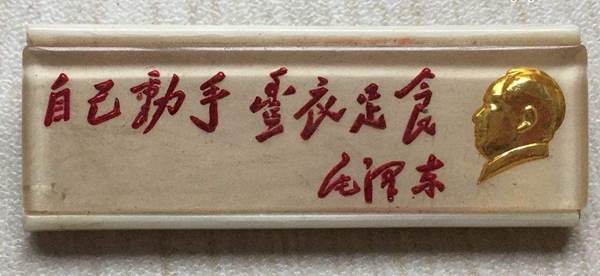 自己動手 豐衣足食
毛澤东